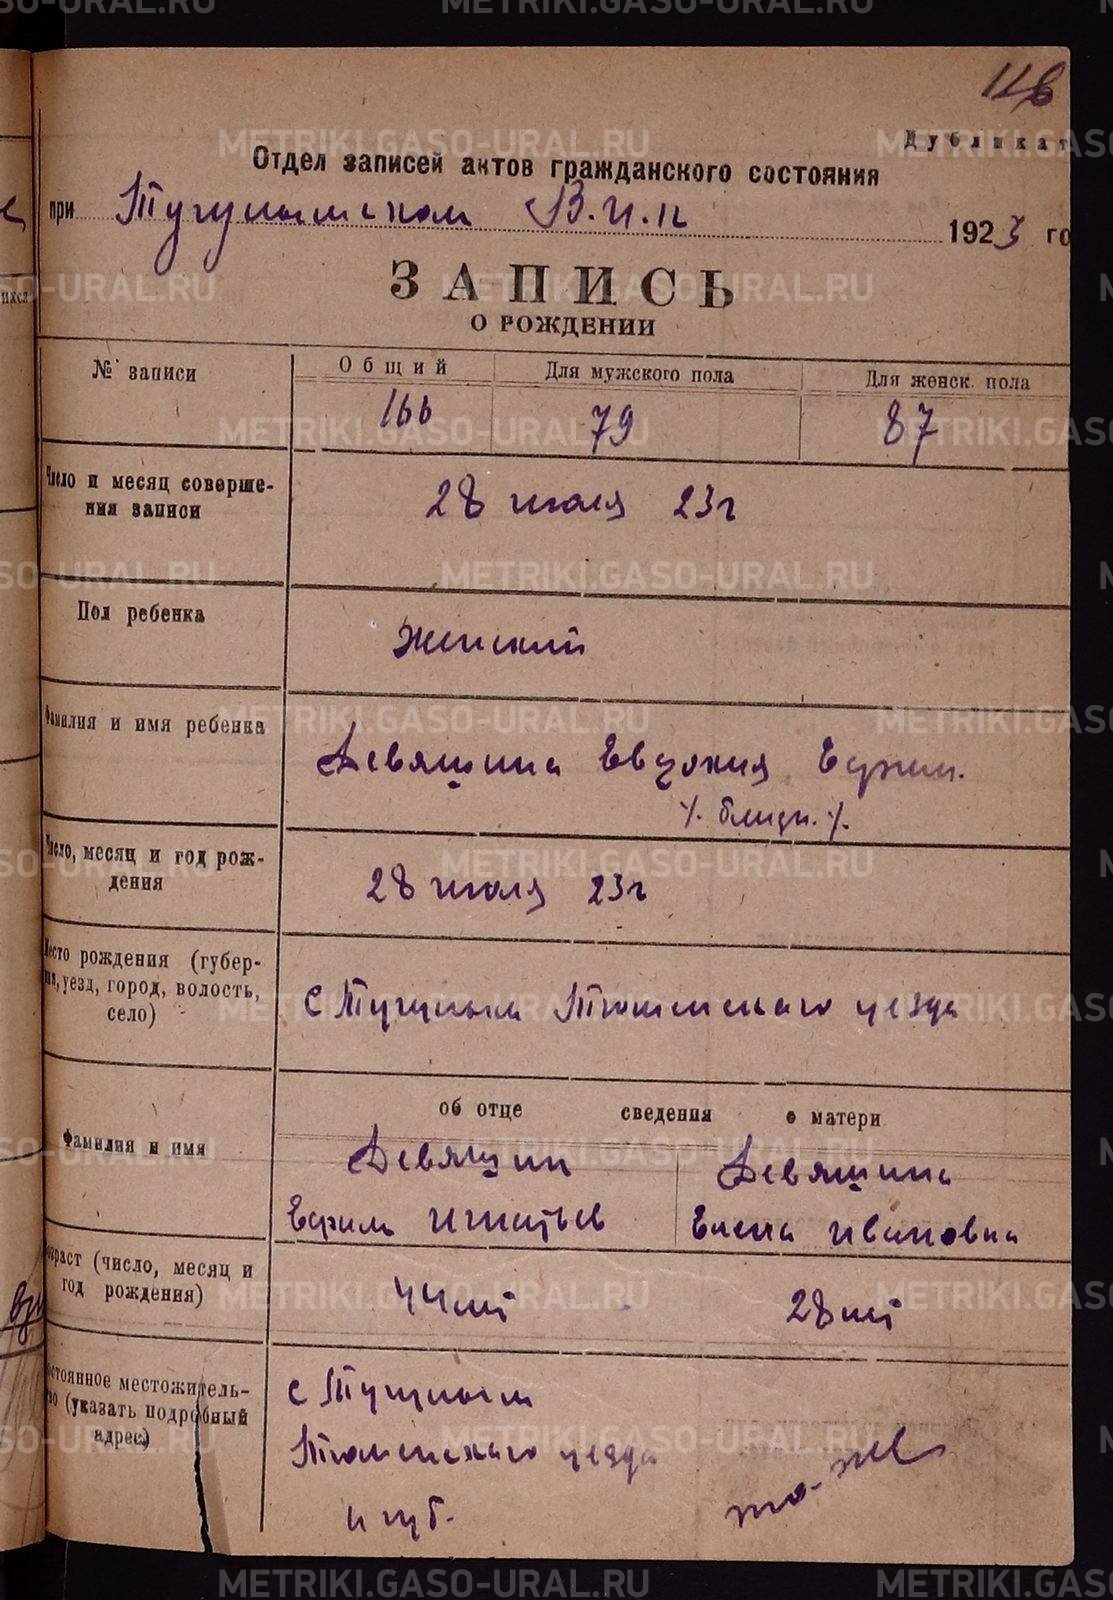 118
Дубликат
Отдел записей актов гражданского состояния
при Тугулымском В.И.К 1923 го
ЗАПИСЬ
О РОЖДЕНИИ
№ записи
Общий
Для мужского пола
Для женск. пола
166
79
87
Число и месяц соверше-
ния записи
28 июля 23г
Пол ребенка
Женский
Фамилия и имя ребенка
Девяшина Евдокия Ефим.
/. близн. /.
Число, месяц и год рож-
дения
28 июля 23г
Место рождения (губер-
ния, уезд, город, волость,
село)
с Тугулым Тюменскаго уезда
об отце сведения о матери
Фамилия и имя
Девяшин
Девяшина
Ефим Игнатьев
Елена Ивановна
Возраст (число, месяц и
год рождения)
44 лет
28 лет
Постоянное местожитель-
ство (указать подробный
адрес)
с Тугулым
Тюменскаго уезда
и губ.
то-же
METRIKI.GASO-URAL.RU